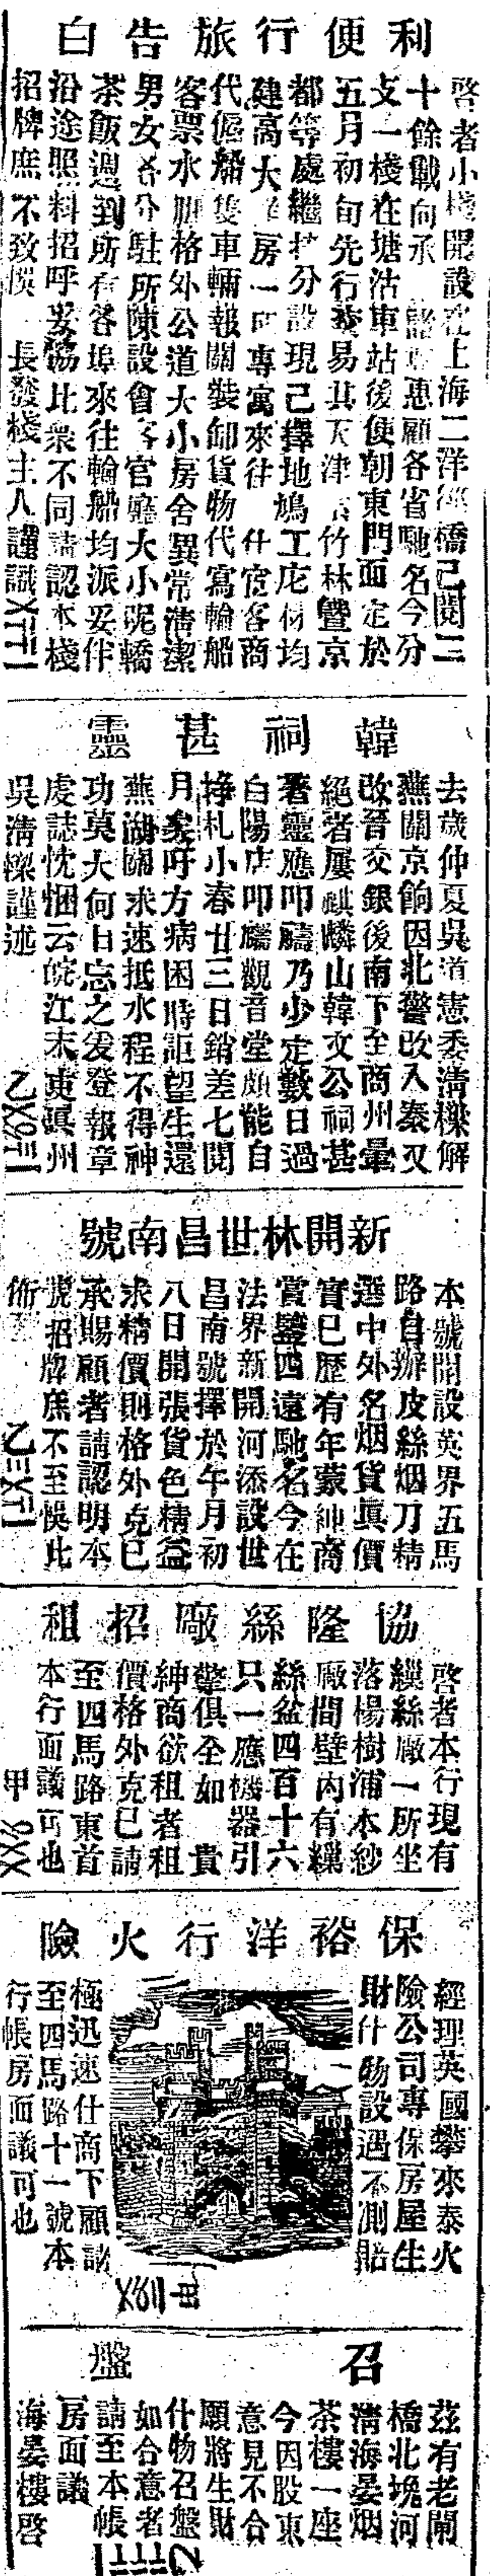 利便行旅告白
啓者小棧開設在上海二洋涇橋已閱三
十餘載向承 諸 惠顧各省馳名今分
支一棧在塘沽車站後便朝東門面定於
五月初旬先行交易其天津 竹林曁京
都等處繼 分設現已擇地鳩工庀材均
建高大 房一 專寓來往 仕宦客商
代僱船隻車輛報關裝卸貨物代寫輪船
客票水脚格外公道大小房舍異常淸潔
男女各分駐所陳設會客官廳大小呢轎
茶飯週到所有各埠來往輪船均派妥伴
沿途照料招呼妥協比衆不同請認本棧
招牌庶不致悞 長發棧主人謹識
韓祠甚靈
去歲仲夏吳道憲委淸樑解
蕪關京餉因北警改入秦又
改晉交銀後南下至商州暈
絕者屢 麟山韓文公祠甚
著靈應叩禱乃少定數日過
白陽店叩禱觀音堂頗能自
掙札小春廿三日銷差七閱
月矣吁方病困時詎望生還
蕪湖關求速抵水程不得神
功莫大何日忘之爰登報章
虔誌忱悃云皖江末吏眞州
吳淸樑謹述
新開林世昌南號
本號開設英界五馬
路自辦皮絲烟刀精
選中外名烟貨眞價
實已歷有年蒙紳商
賞鑒四遠馳名今在
法界新開河添設世
昌南號擇於午月初
八日開張貨色精益
求精價則格外克已
承賜顧者請認明本
號招牌庶不至悞此
佈
協隆絲廠招租
啓者本行現有
繅絲廠一所坐
落楊樹浦本紗
廠間壁內有繅
絲盆四百十六
只一應機器引
擎俱全如 貴
紳商欲租者租
價格外克已請
至四馬路東首
本行面議可也
甲
保裕洋行火險
經理英國攀來泰火
險公司專保房屋生
財什物設遇不測賠
極迅速仕商下顧請
至四馬路十一號本
行帳房面議可也
召盤
茲有老閘
橋北堍河
淸海晏烟
茶樓一座
今因股東
意見不合
願將生財
什物召盤
如合意者
請至本帳
房面議
海晏樓啓